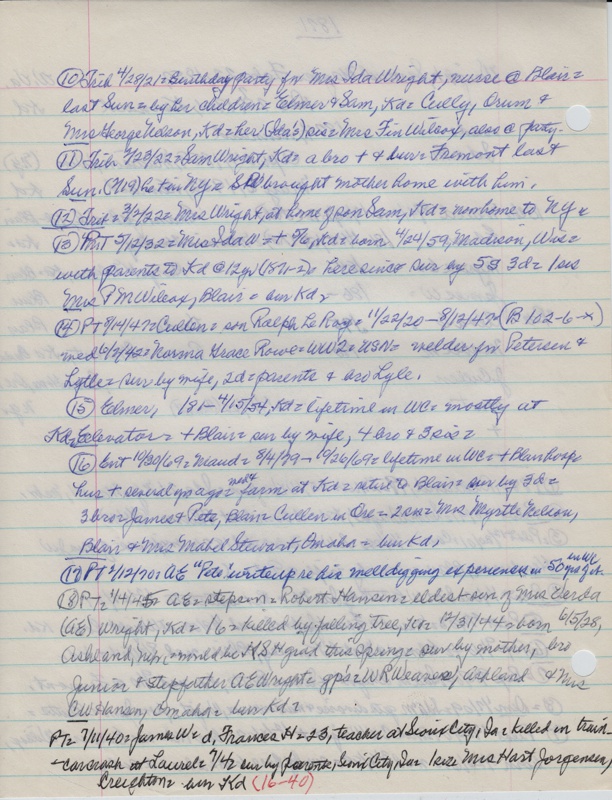 (10) Trib 4/28/21 = Birthday party for Mrs Ida Wright, nurse @ Blair =
last Sun = by her children = Elmer & Sam, Kd = Cully, Orum &
Mrs George Nelson, Kd = her (Ida's) sis = Mrs Fin Wilcox, also @ party.
(11) Trib 7/28/22 = Sam Wright, Kd = a bro + & bur = Fremont last
Sun. he + in NY = brought mother home with him.
(12) Trib = 3/2/22 = Mrs Wright, at home of son Sam, Kd = now home to NY
(13) PT 5/12/32 = Mrs Ida W = + 5/6, Kd = born 4/24/59, Madison, Wisc =
with parents to Kd @ 12 yr (1871-2) = here since = sur by 5s 3d = 1 sis
Mrs F M Wilcox, Blair = bur Kd =
(14) PT 8/14/47 = Cullen = son Ralph Le Roy = 11/22/20 – 8/12/47 = (B 102-6-x)
med 6/7/42 = Norma Grace Rowe = WW2 = USN = welder for Petersen &
Lytle = sur by wife, 2d = parents & bro Lyle.
(15) Elmer, 181 – 4/15/54, Kd = lifetime in WC = mostly at
Kd = Elevator = + Blair = sur by wife, 4 bro & 3 sis =
(16) Ent 10/30/69 = Maud = 8/4/79 – 10/26/69 = lifetime in WC = + Blair hosp
hus + several yrs ago = farm at Kd = retire to Blair = sur by 3d =
3 bro = James & Pete, Blair = Cullen in Ore = 2 sis = Mrs Myrtle Nelson,
Blair & Mrs Mabel Stewart, Omaha = bur Kd,
(17) PT 2/12/70 = AE "Pete" writeup re his well digging experiences in 50 yrs
(18) PT = 1/4/45 = AE = stepson = Robert Hansen = eldest son of Mrs Verda
(AE) Wright, Kd = 16 = killed by falling tree, 12/31/44 = born 6/5/28,
Ashland, = would be HSH grad this spring = sur by mother, bro
Junior & stepfather AE Wright = gp's = W R Weaver, Ashland & Mrs
CW Hansen, Omaha = bur Kd =
PT = 7/11/40 = James W = d, Frances H = 23, teacher at Sioux City, Ia = killed in train
-car crash at Laurel = 7/4 = sur by parents, Sioux City, Ia = 1 sis = Mrs Hart Jorgensen,
Creighton = bur Kd (16-40)